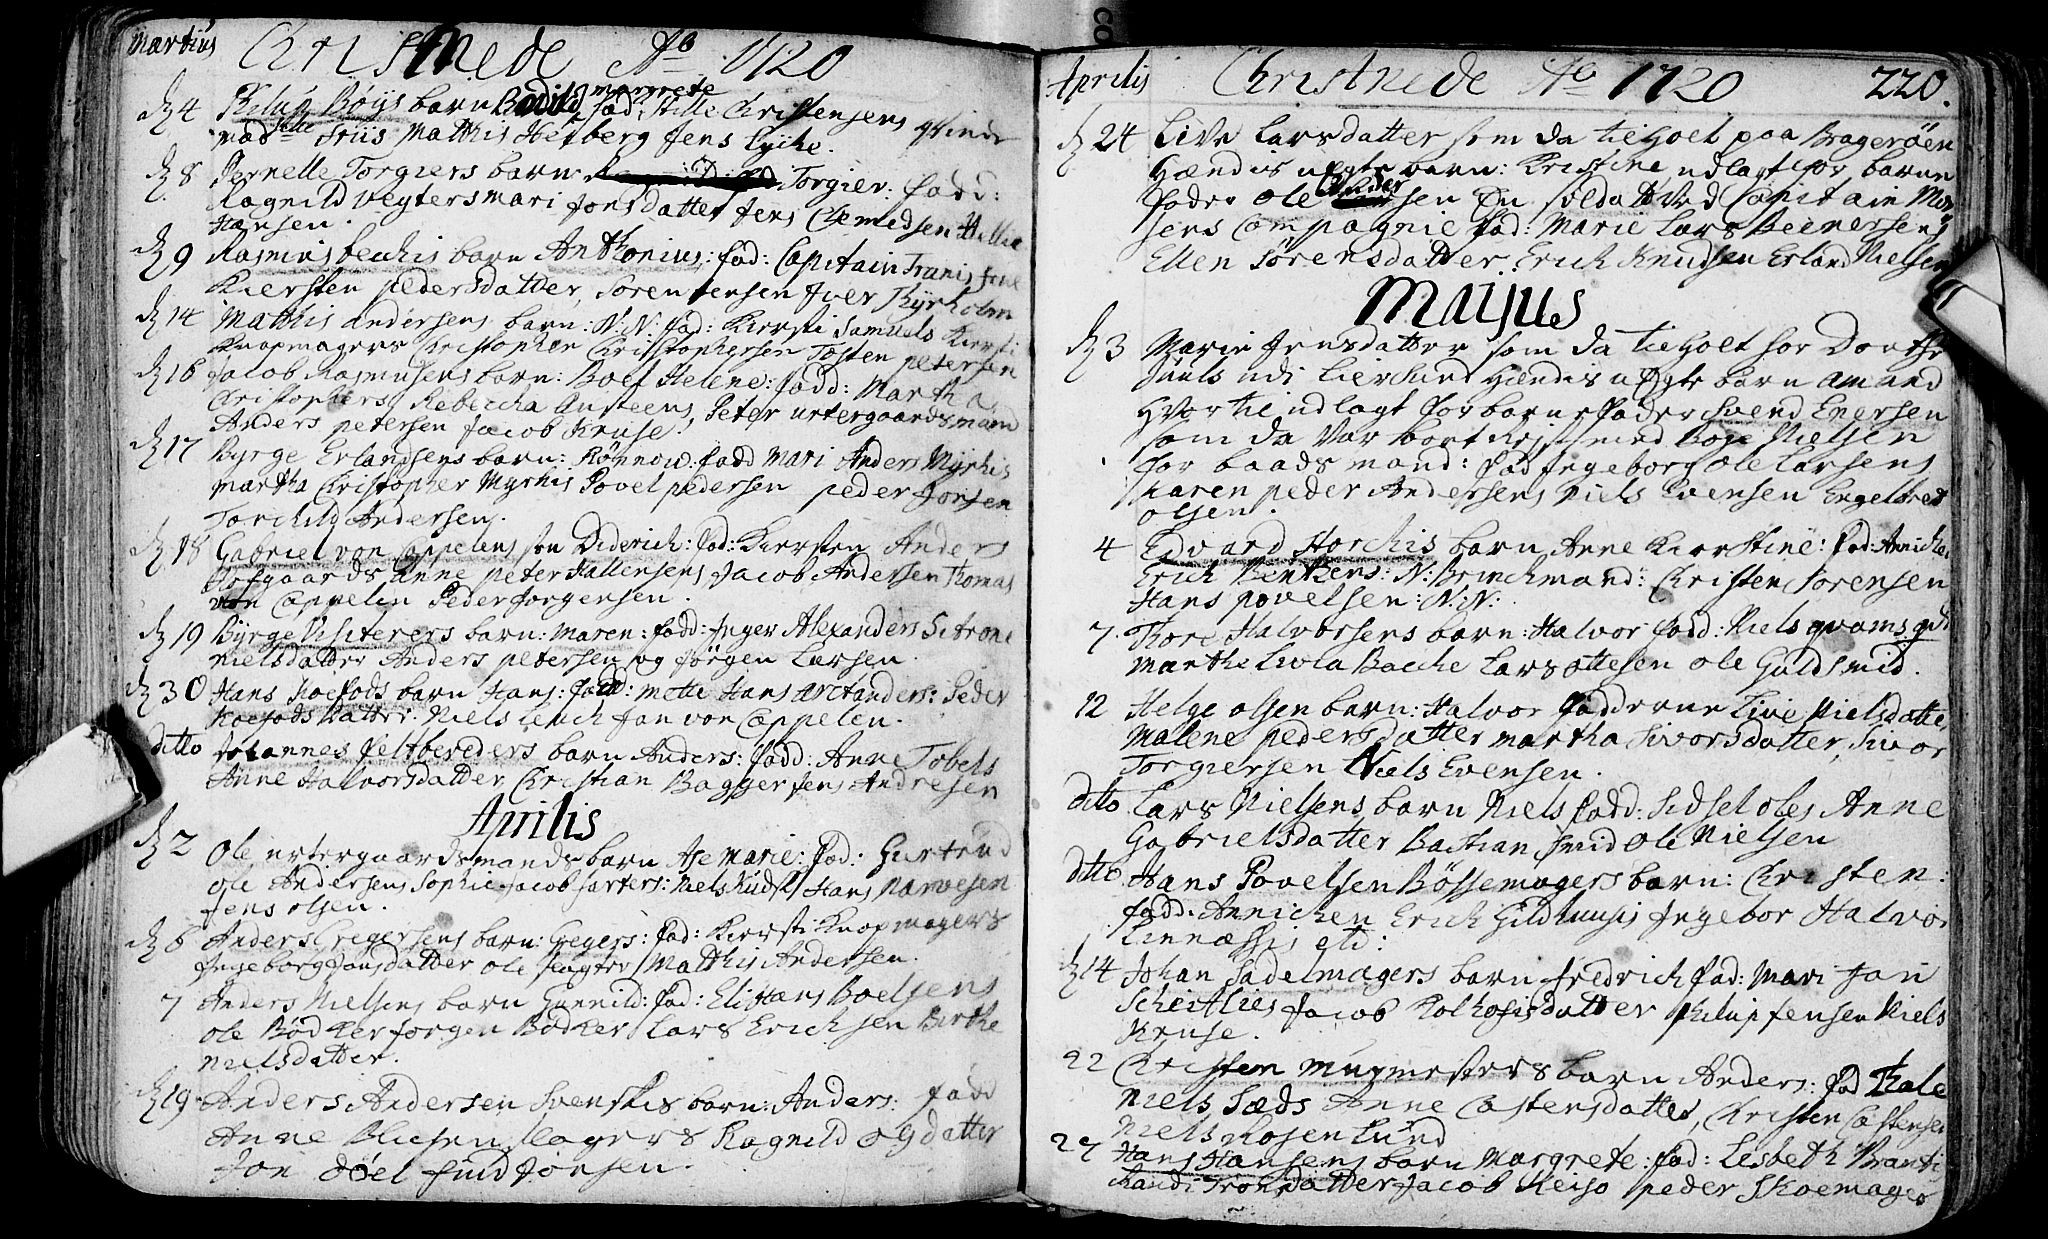 Martius Christnede Ao 1720
d 4 Philip Böÿs barn Bodild margrete fad: Stille Christensens qvinde
mad Friis Matthis Hesberg Jens Lyche.
d 8 Pernelle Torgiers barn Torgier: fadd:
Ragnild Vegters mari Jonsdatter Jens Clemedsen
Hansen.
d 9 Rasmus bechis barn Anthonius: fad: Capitain
Kiersten pedersdatter, Sören Jensen Iver Thyrholm
d 14 Matthis Andersens barn: N: N: fad: Kiersti Samuels Kiersti
Knapmagers Christopher Christophersen Tosten petersen
d 16 Jacob Rasmusens barn: Boel Helene: fadd: Martha
Christophers Rebeccha Austeens, Peter urtergaardsmand
Anders petersen Jacob Kruse.
d 17 Byrge Erlandsens barn: Rönnow: fadd Mari Anders Myrhis
Martha Christopher Myrhis Povel pedersen peder Jonsen
Torchild Andersen.
d 18 Gabriel von Cappelens sön Diderich: fad: Kiersten Anders
Tofgaards Anne peter Hallensens Jacob Andersen Thomas
von Cappelen Peder Jorgensen.
d 19 Byrge Visiterers barn: Maren: fadd: Inger Alexanders Sitrone
Nielsdatter Anders petersen og Jörgen Larsen.
d 30 Hans Koefods barn Hans: fadd: Mette Hans Arctanders: Peder
Koefods Datter. Niels Leuch Jan von Cappelen.
ditto Johannes feltbereders barn Anders: fadd: Anne Tobels
Anne Halvorsdatter Christian Bagger Jens Andresen
Aprilis
d 2 Ole urtergaardsmands barn Ase marie: fad: Giertrud
ole Andersens Sophie Jacob sarters: Niels Hans
Jens olsen.
d 6 Anders Gregersens barn: Gregers: fad: Kiersti Knapmagers
Ingeborg Jonsdatter ole slagter Matthis Andersen.
7 Anders Nielsens barn Gunnild: fad: Eli Hans Boelsens
ole Bödker Jorgen Bödker Lars Erichsen Birthe
Nielsdatter.
d 19 Anders Andersen Svenskis barn: Anders: fadd
Anne Slagers Ragnild Ogdatter
Jon Döel Smid Jonsen.
Aprilis Christnede Ao 1720 220.
d 24 Live Larsdatter som da tieholt paa Brageröen
Hændis uægte barn: Kirstine udlagt for barne
fader ole Andersen En soldatt Ved Capitain
sens Compagnie fad: Marie Lars Beemersens
Ellen Sörensdatter. Erich Knudsen Erland Nielsen
Maijus
d 3 Marie Jensdatter som da tieholt hos Dorthe
Juuls udi Lier Hændis uægte barn Amund
hvortil udlagt for barnefader Svend Enersen
som da var bort med Boye Nielsen
for baadsmand: fad Ingeborg ole Larsens
Karen peder Andersens Niels Evensen Engelbret
olsen.
4 Edvard Storchis barn Anne Kierstine: fad: Annichen
Erich Benthens: N: Brinchmand: Christen Sörensen
Hans povelsen: N: N:
7. Thore Halvorsens barn: Halvor fadd: Niels qvams
Marthe Livia Bache Lars ottesen ole Guldsmid.
12 Helge olsen barn: Halvor fadderne Live Nielsdatter,
Malene pedersdatter Martha Sivorsdatter, Sivor
Torgiersen Niels Evensen.
ditto Lars Nielsens barn Niels fadd: Sidsel oles Anne
Gabrielsdatter Bastian Smid Ole Nielsen
ditto Hans Povelsen Bössemagers barn: Christen:
fadd: Annichen Erich Gildhuusis Ingebor Halvor
Linnæssis etc:
d 14 Johan Sadelmagers barn fredrich fad: Mari Jan
Scheitlies Jacob datter Philip Jensen Niels
Kruse.
22 Christen Muurmesters barn Anders: fad Thale
Niels Sæds Anne Castensdatter, Christen Castensen
Niels Rosenlund
27 Hans Hansens barn Margrete: fad: Lisbeth
Randi Tronsdatter Jacob Peder Skoemager